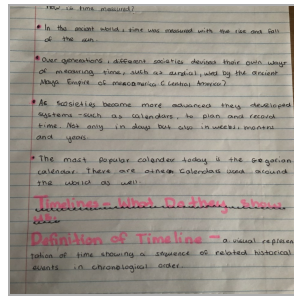 how is time measured?
• In the ancient world, time was measured with the rise and fall
of the sun.
• Over generations, different societies devised their own ways
of measuring time, such as sundial, used by the ancient
Maya Empire of mesoamerica (Central America)
• As societies became more advanced they developed
systems - such as calendars, to plan and record
time. Not only in days but also in weeks, months
and years.
• The most popular calendar today is the Gregorian
calendar. There are other calendars used around
the world as well.
Timelines - What Do they Show
us.
Definition of Timeline - a visual represen
tation of time showing a sequence of related historical
events in chronological order.